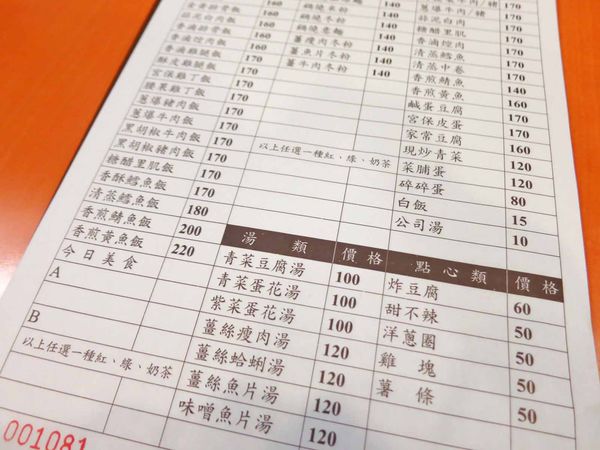 香滷雞腿飯 160
酥皮雞腿飯 170
宮保雞丁飯 170
腰果雞丁飯 170
蔥爆豬肉飯 170
蔥爆牛肉飯 170
黑胡椒牛肉飯 170
黑胡椒豬肉飯 170
糖醋里肌飯 170
香酥鱈魚飯 170
清蒸鱈魚飯 170
香煎鯖魚飯 180
香煎黃魚飯 200
今日美食 220
A
B
以上任選一種紅、綠、奶茶
001081
鍋燒米粉 140
鍋燒冬粉 140
鍋燒意麵 140
薑瘦肉冬粉 140
薑魚片冬粉 140
薑牛肉冬粉 140
以上任選一種紅、綠、奶茶
湯類 價格
青菜豆腐湯 100
青菜蛋花湯 100
紫菜蛋花湯 100
薑絲瘦肉湯 120
薑絲蛤蜊湯 120
薑絲魚片湯 120
味噌魚片湯 120
蒜泥白肉 170
糖醋里肌 170
香滷控肉 170
清蒸鱈魚 170
清蒸中卷 170
香煎鯖魚 170
香煎黃魚 140
鹹蛋豆腐 160
宮保皮蛋 170
家常豆腐 170
現炒青菜 160
菜脯蛋 120
碎碎蛋 120
白飯 80
公司湯 15
10
點心類 價格
炸豆腐 60
甜不辣 50
洋蔥圈 50
雞塊 50
薯條 50